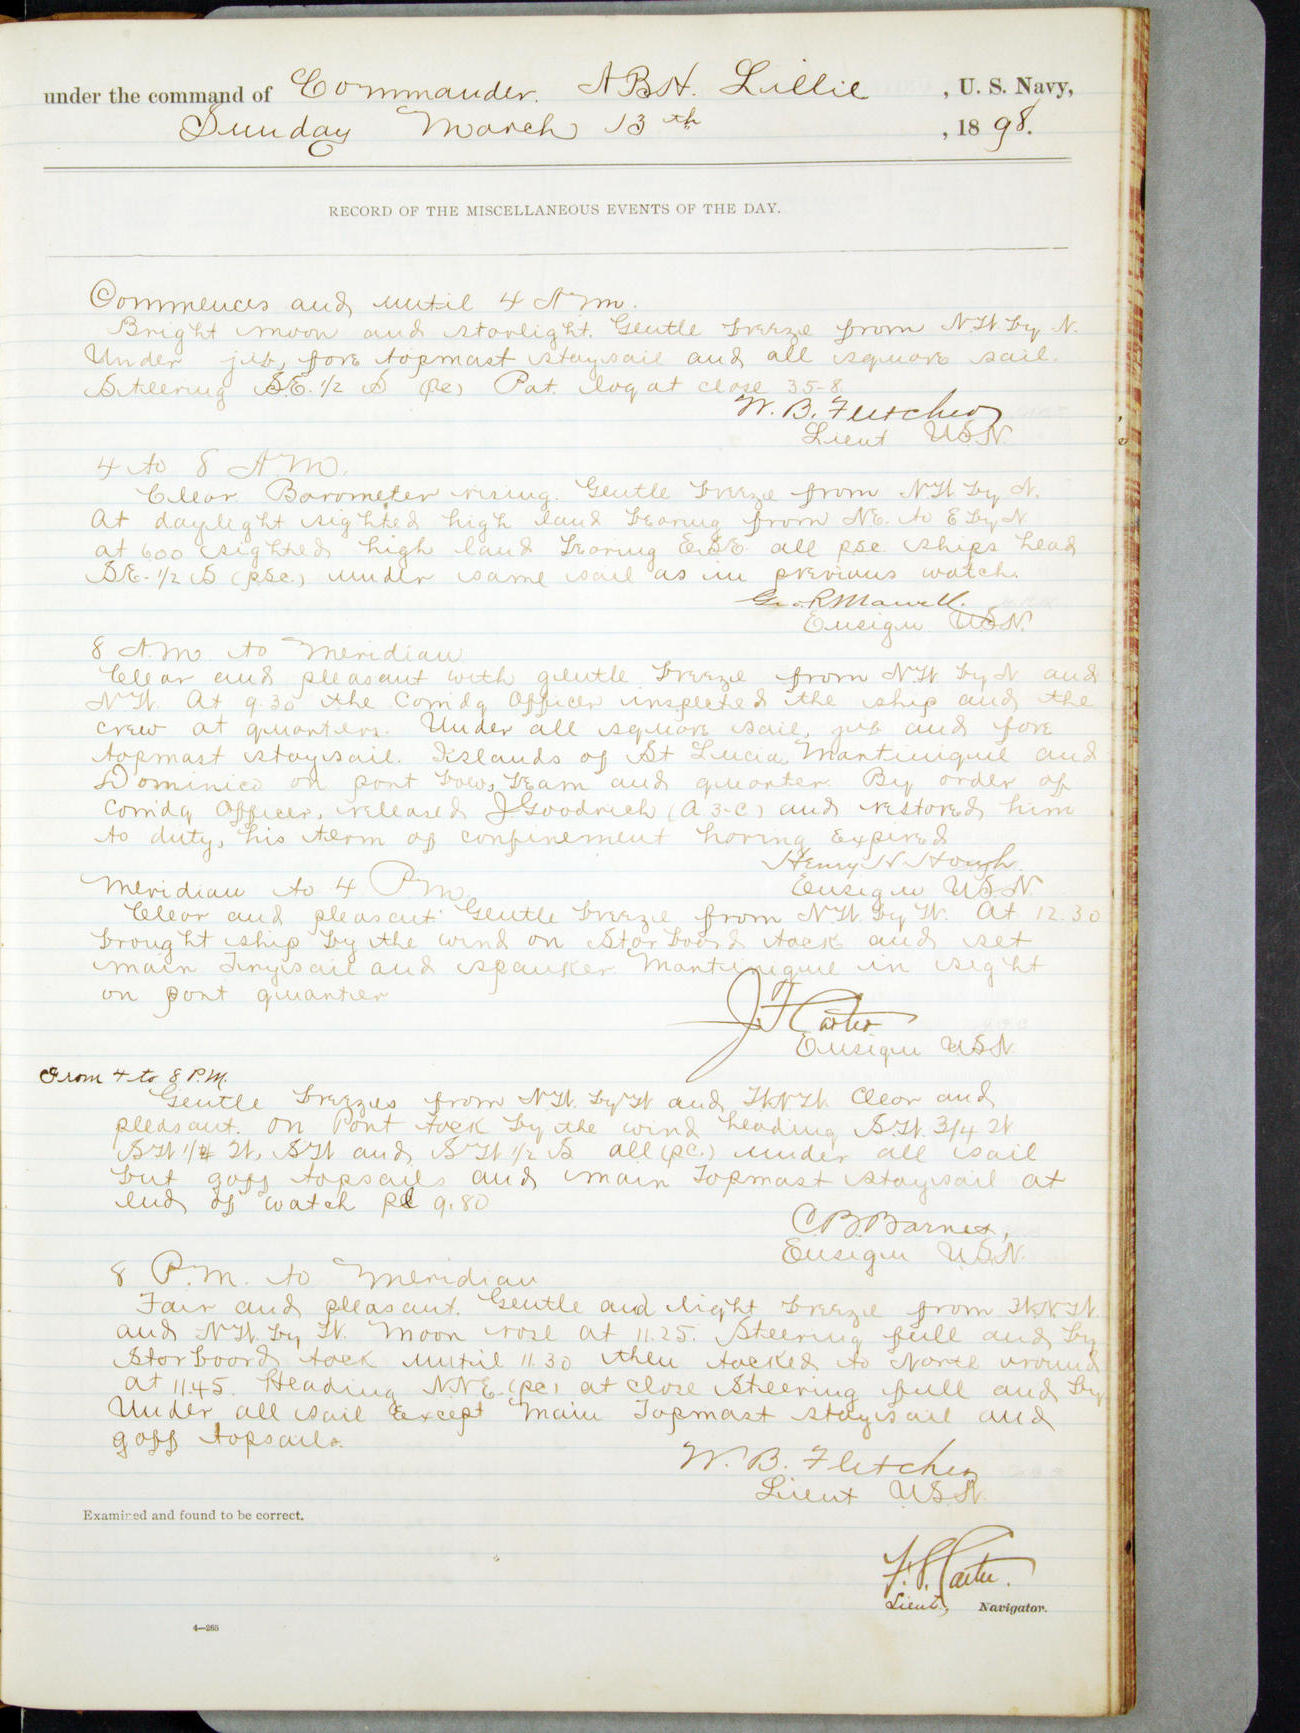 under the command of Commander. A B H. Lillie , U. S. Navy,
Sunday March 13th , 1898.
RECORD OF THE MISCELLANEOUS EVENTS OF THE DAY.
Commences and until 4 A m.
Bright moon and starlight. Gentle breeze from N.W. by N.
Under jib, fore topmast staysail and all square sail.
Steering S.E. 1/2 S (pc) Pat. log at close 35-8
W. B. Fletcher
Lieut USN.
4 to 8 A.M.
Clear Barometer rising. Gentle breeze from N.W. by N.
At daylight sighted high land bearing from NE. to E by N
at 600 sighted high land bearing ESE. all psc. ships head
S.E. 1/2 S (psc.) under same sail as in previous watch.
Geo R Marvell.
Ensign USN.
8 A.M. to Meridian
Clear and pleasant with gentle breeze from N.W. by N and
N.W. At 9.30 the Comdg Officer inspected the ship and the
crew at quarters. Under all square sail, jib and fore
topmast staysail. Islands of St Lucia, Martinique and
Dominica on port bow, beam and quarter. By order of
Comdg Officer, released J Goodrich (A 3-C) and restored him
to duty, his term of confinement having expired
Henry N Hough
Ensign U.S.N.
Meridian to 4 P m
Clear and pleasant. Gentle breeze from N.W. by W. At 12.30
brought ship by the wind on Starboard tack and set
main trysail and spanker. Martinique in sight
on port quarter
J F Carter
Ensign USN.
From 4 to 8 P.M.
Gentle breezes from N.W. by W and W.N.W. Clear and
pleasant. On Port tack by the wind heading S.W. 3/4 W
SW 1/4 W, SW and S.W. 1/2 S all (pc.) under all sail
but gaff topsails and main Topmast staysail at
end of watch pl 9.80
C B. Barnes,
Ensign U.S.N.
8 P.m. to Meridian
Fair and pleasant. Gentle and light breeze from W.N.W.
and N.W. by W. Moon rose at 11.25. Steering full and by
Starboard tack until 11.30 then tacked to North around
at 11.45. Heading N.N.E. (pc) at close Steering full and by
Under all sail Except Main Topmast staysail and
gaff topsails.
W. B. Fletcher
Lieut U.S.N.
Examined and found to be correct.
Carter.
Lieut, Navigator.
4—265